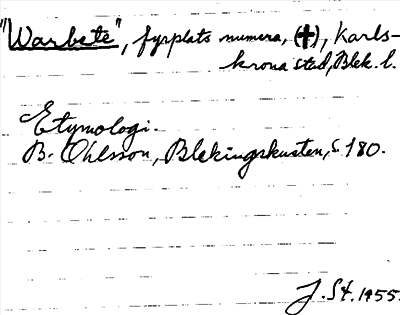 "Warbete", fyrplats numera, (+), Karls-
krona stad, Blek. l.
Etymologi.
B. Ohlsson, Blekingskusten, s. 180.
J. St. 1955.